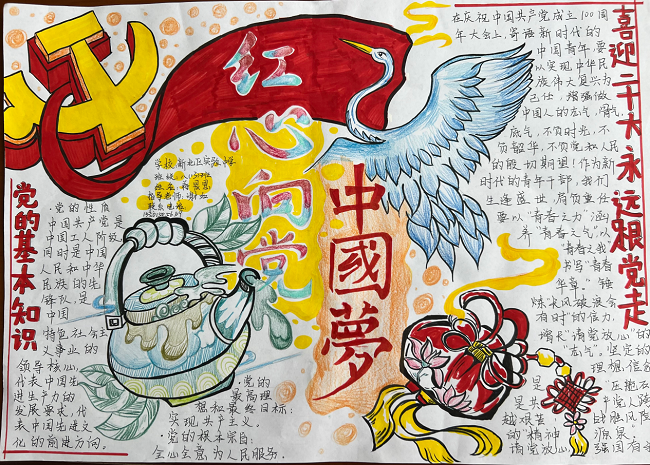 红心向党
中國夢
喜迎二十大永远跟党走
党的基本知识
学校:新北区实验
班级:
姓名:
指导老师:
联系电话:
·党的性质
中国共产党是
中国工人阶级
同时是中国
人民和中华
民族的先
锋队,是
中国
特色社会主
义事业的
领导核心,
代表中国先
进生产力的
发展要求,代
表中国先进文
化的前进方向。
·党的
最高理
想和最终目标:
实现共产主义。
·党的根本宗旨:
全心全意为人民服务。
在庆祝中国共产党成立100周
年大会上,寄语新时代的
中国青年要
以实现中华民
族伟大复兴为
己任,增强做
中国人的志气、骨气、
底气,不负时光,不
负韶华,不负党和人民
的殷切期望!作为新
时代的青年干部,我们
生逢盛世,肩负重任
要以“青春之力”涵
养“青春之气”以
“青春之我”
书写“青春
华章”。锤
炼长风破浪会
有时的“信力”,
增长“请党放心”的
“志气”。坚定的
理想,信念
是
是共
越艰苦
的精神
请党放心,强国有